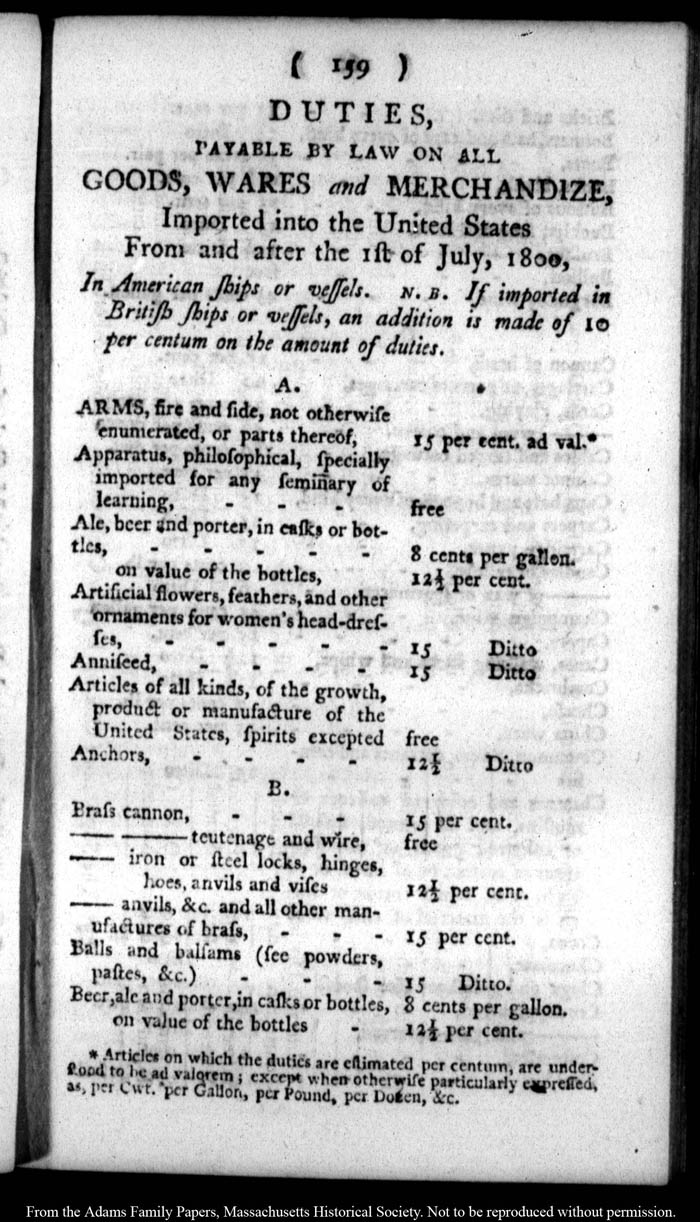 ( 159 )
DUTIES,
PAYABLE BY LAW ON ALL
GOODS, WARES and MERCHANDIZE,
Imported into the United States
From and after the 1ſt of July, 1800,
In American ſhips or veſſels. N. B. If imported in
Britiſh ſhips or veſſels, an addition is made of 10
per centum on the amount of duties.
A.
ARMS, fire and ſide, not otherwiſe
enumerated, or parts thereof, 15 per cent. ad val.*
Apparatus, philoſophical, ſpecially
imported for any ſeminary of
learning, - - - - free
Ale, beer and porter, in caſks or bot-
tles, - - - - - 8 cents per gallon.
on value of the bottles, 12½ per cent.
Artificial flowers, feathers, and other
ornaments for women's head-dreſ-
ſes, - - - - - 15 Ditto
Anniſeed, - - - - 15 Ditto
Articles of all kinds, of the growth,
product or manufacture of the
United States, ſpirits excepted free
Anchors, - - - - 12½ Ditto
B.
Braſs cannon, - - - 15 per cent.
—— —— teutenage and wire, free
—— iron or ſteel locks, hinges,
hoes, anvils and viſes 12½ per cent.
—— anvils, &c. and all other man-
ufactures of braſs, - - - 15 per cent.
Balls and balſams (ſee powders,
paſtes, &c.) - - - - 15 Ditto.
Beer, ale and porter, in caſks or bottles, 8 cents per gallon.
on value of the bottles - 12½ per cent.
* Articles on which the duties are eſtimated per centum, are under-
ſtood to be ad valorem; except when otherwiſe particularly expreſſed,
as, per Cwt. per Gallon, per Pound, per Dozen, &c.
From the Adams Family Papers, Massachusetts Historical Society. Not to be reproduced without permission.